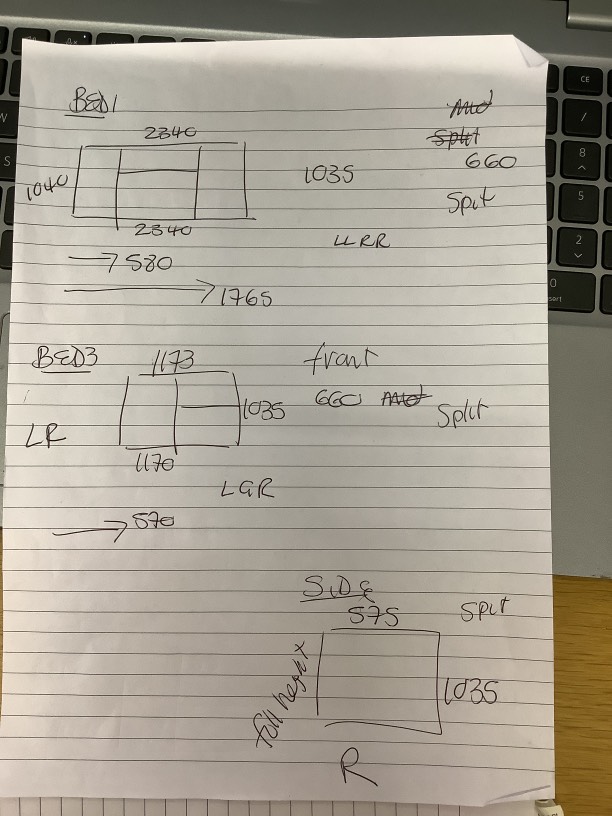 BED1
2340
1040
1035
Mid
Split
660
Split
2340
LLRR
580
1765
BED3
1173
front
660 Mid Split
1035
LR
1170
LGR
570
SIDE
575
Split
full height
1035
R
CE
/
8
5
2
0
W
S